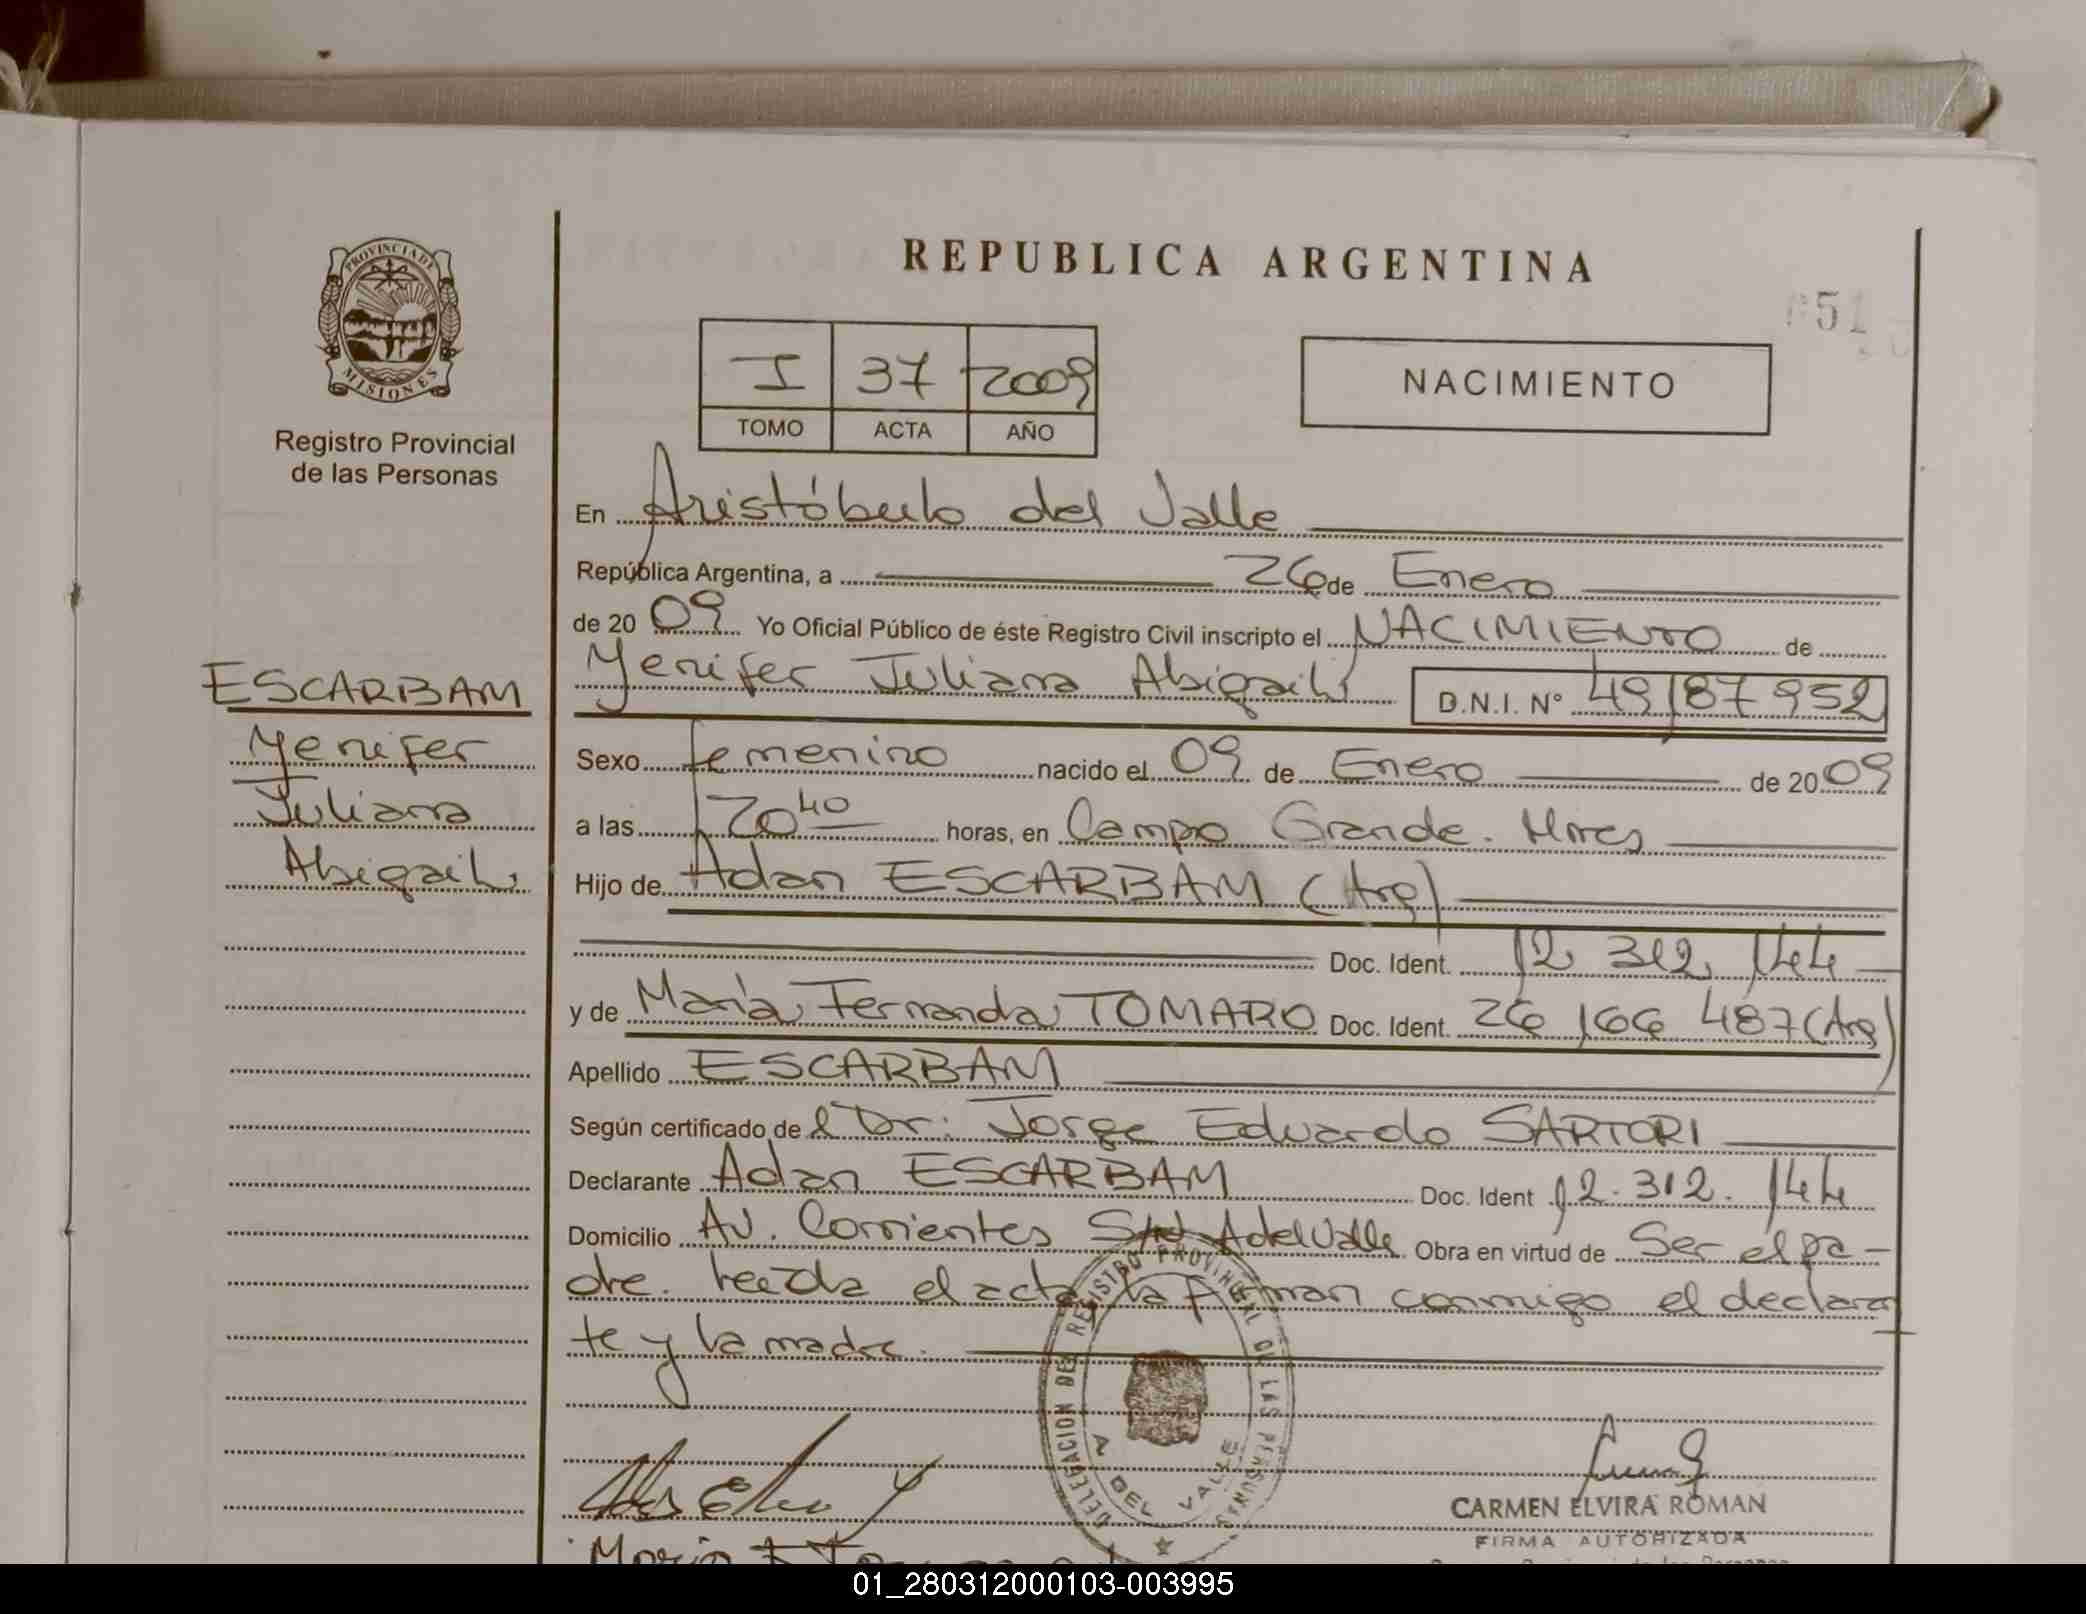 PROVINCIA DE
MISIONES
Registro Provincial
de las Personas
ESCARBAM
Yenifer
Juliana
Abigail
REPUBLICA ARGENTINA
051
I 37 2009
TOMO ACTA AÑO
NACIMIENTO
En Aristóbulo del Valle
República Argentina, a 26 de Enero
de 2009 Yo Oficial Público de éste Registro Civil inscripto el NACIMIENTO de
Yenifer Juliana Abigail D.N.I. N° 49187952
Sexo femenino nacido el 09 de Enero de 2009
a las 20 40 horas, en Campo Grande. Mnes
Hijo de Adan ESCARBAM (Arg)
Doc. Ident. 12.312.144
y de María Fernanda TOMARO Doc. Ident. 26 166 487 (Arg)
Apellido ESCARBAM
Según certificado de el Dr: Jorge Eduardo SARTORI
Declarante Adan ESCARBAM Doc. Ident 12.312.144
Domicilio Av. Corrientes S/N A del Valle Obra en virtud de Ser el pa-
dre. Leída el acta la firman conmigo el declaran
te y la madre.
DELEGACION DEL REGISTRO PROVINCIAL DE LAS PERSONAS
A DEL VALLE
CARMEN ELVIRA ROMAN
FIRMA AUTORIZADA
01_280312000103-003995